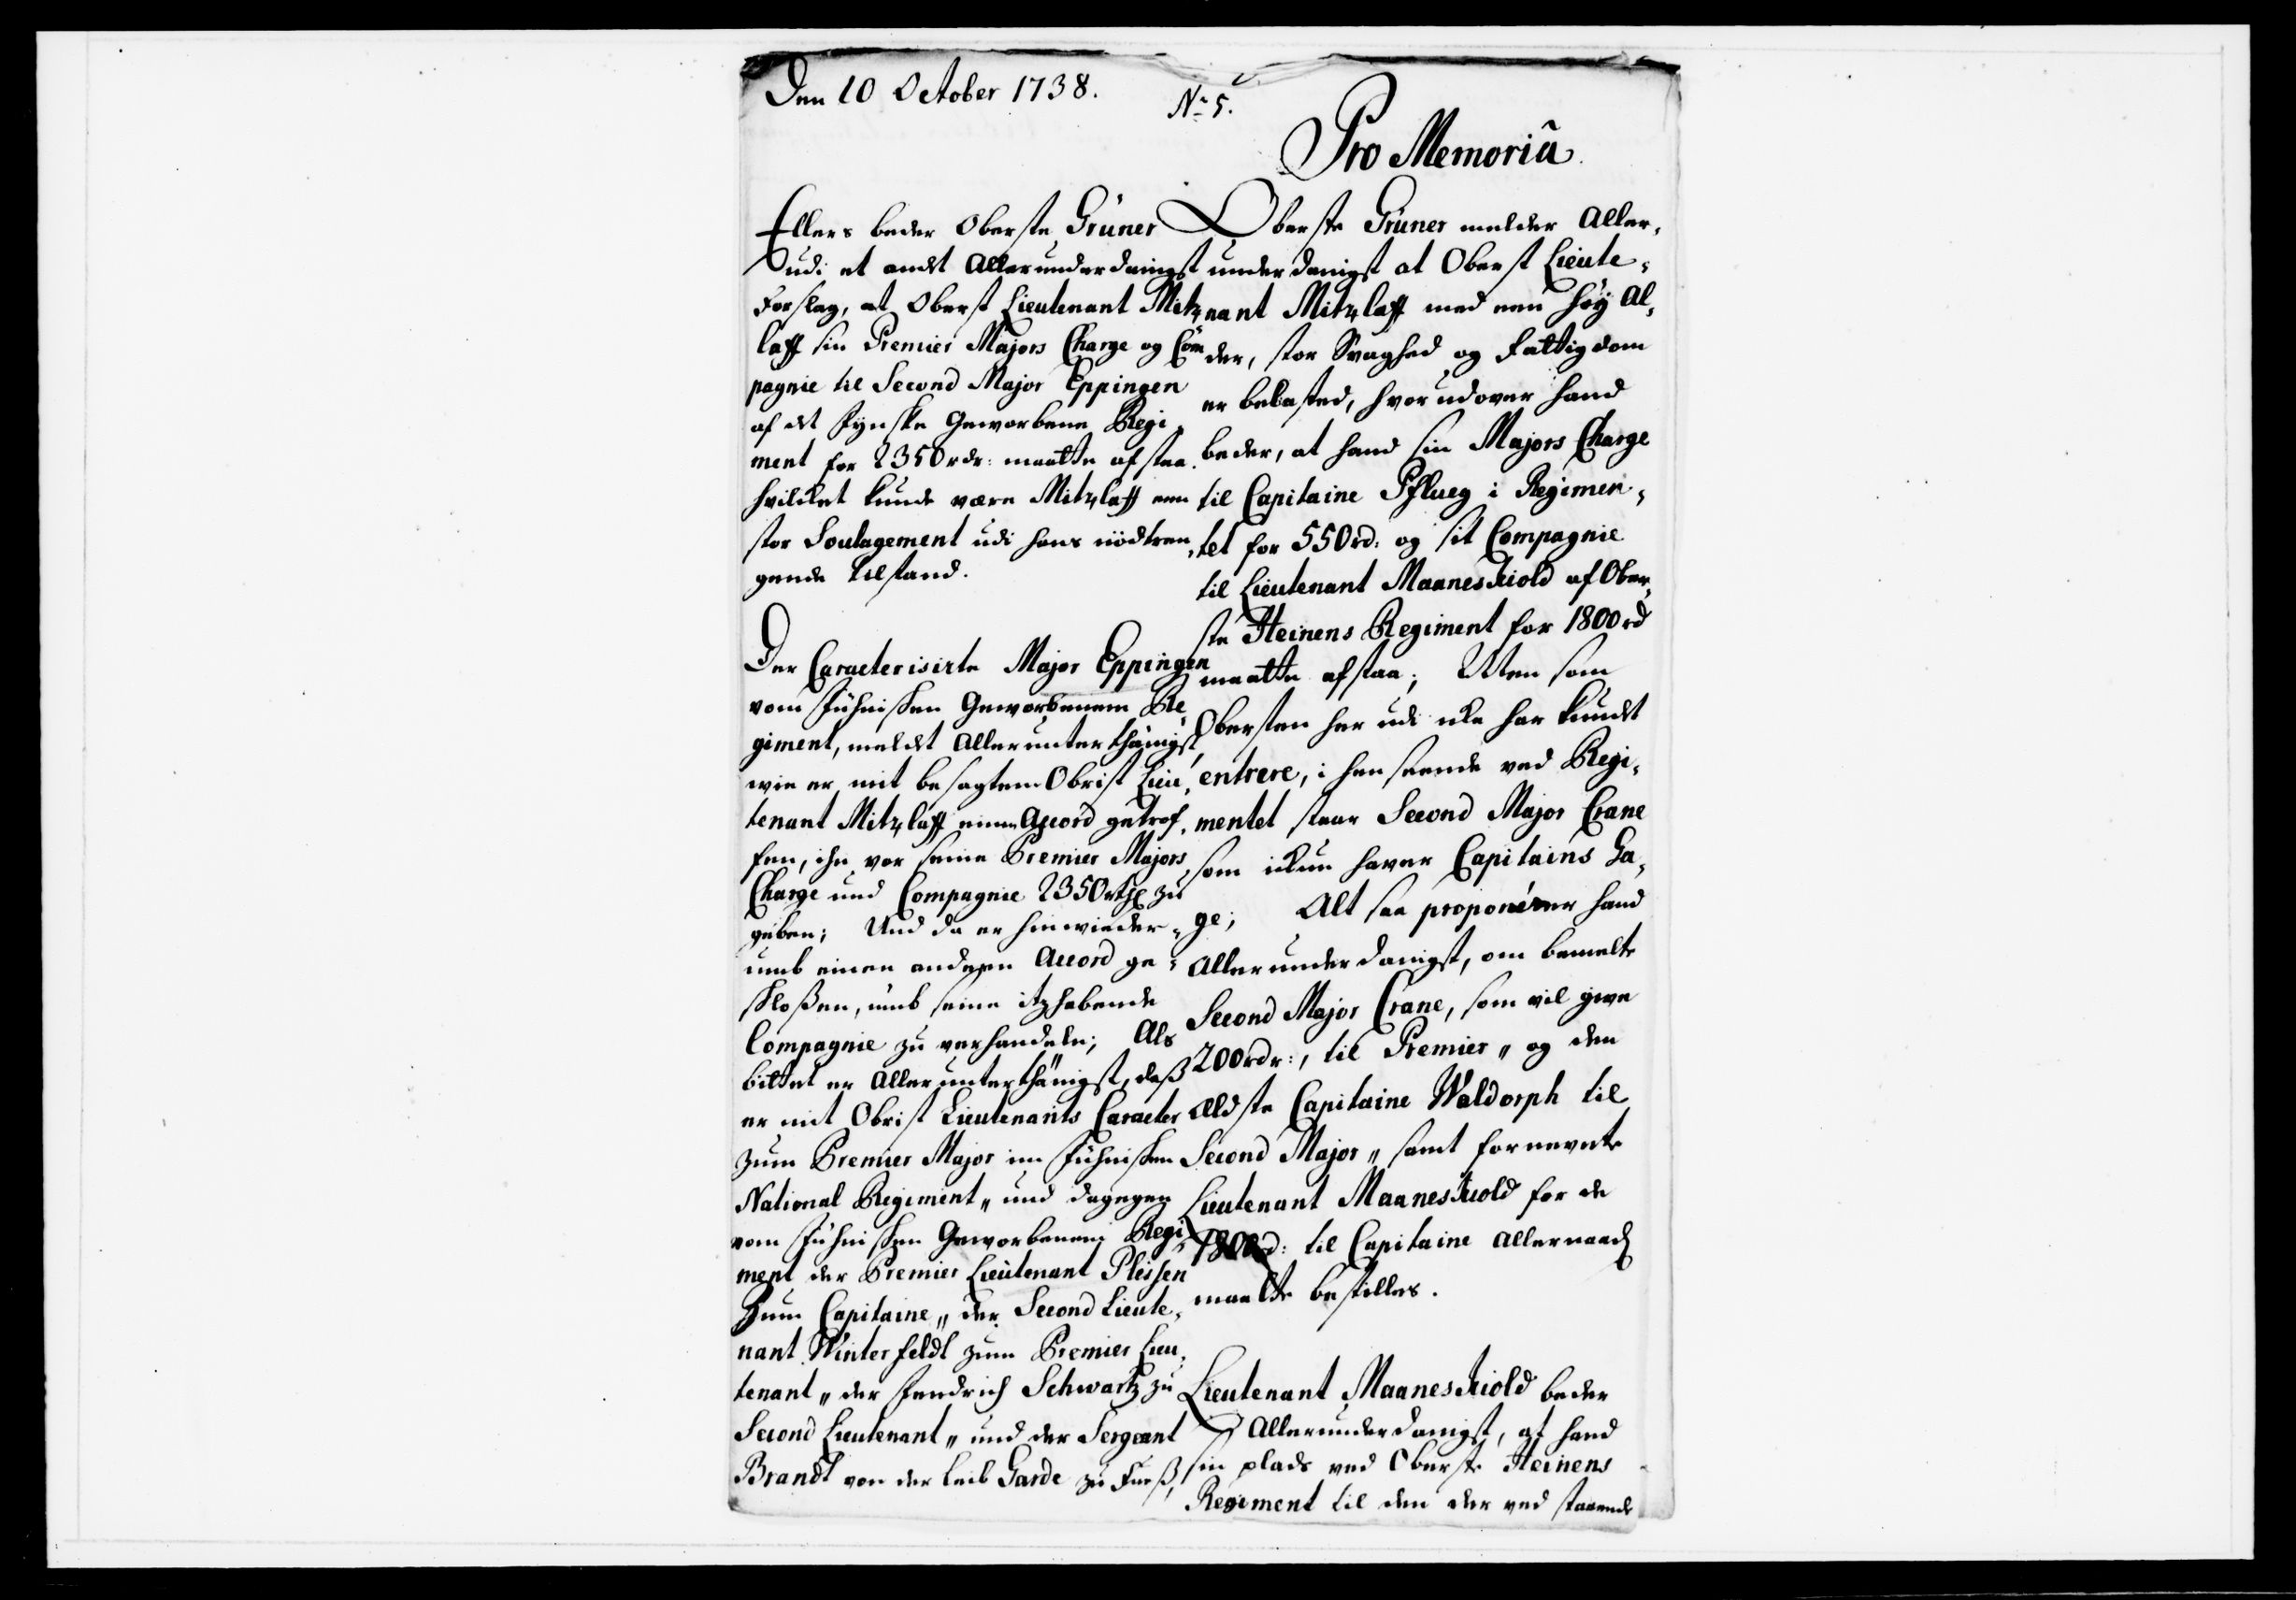 Den 10 October 1738.
No 5.
Pro Memoriâ
Ellers beder Oberste Grüner
udi et andet Allerunderdanigst
Forslag, at Oberst Lieutenant Mitz
laff sin Premier Majors Charge og Com
pagnie til Second Major Eppingen
af det Fynske Geworbene Regi
ment for 2350 rdr: maatte afstaa.
hvilcket kunde være Mitzlaff een
stor Soulagement udi hans nödtren
gende tilstand.
Der Caracterisirte Major Eppingen
vom Fühnischen Geworbenem Re
giment, meldet Allerunterthänigst,
wie er mit besagtem Obrist Lieu,
tenant Mitzlaff einen Accord getrof,
fen, ihn vor seine Premier Majors
Charge und Compagnie 2350 rthl zu
geben; Und da er hinwieder-
umb einen andern Accord ge-
schloßen, umb seine itzhabende
Compagnie zu verhandeln; Als
bittet er Allerunterthänigst, daß
er mit Obrist Lieutenants Caracter
zum Premier Major im Fühnischen
National Regiment" und dagegen
vom Fühnischen Geworbenem Regi
ment der Premier Lieutenant Plessen
zum Capitaine" der Second Lieute,
nant Winterfeldt zum Premier Lieu,
tenant" der Fendrich Schwartz zu
Second Lieutenant" und der Sergeant
Brandt von der Leib Garde zu Fueß,
Oberste Grüner melder Aller,
underdanigst at Oberst Lieute,
nant Mitzlaff med een høy Al,
der, stor Svaghed og Fattigdom
er belasted, hvorudover hand
beder, at hand sin Majors Charge
til Capitaine Pflueg i Regimen,
tet for 550 rd: og sit Compagnie
til Lieutenant Maaneskiold af Ober,
ste Heinens Regiment for 1800 rd
maatte afstaa; Men som
Obersten her udi icke har kundet
entrere, i henseende ved Regi,
mentet staar Second Major Crane
som ickun haver Capitains Ga,
ge; Alt saa proponerer hand
Allerunderdanigst, om bemelte
Second Major Crane, som vil give
200 rdr:, til Premier" og den
ældste Capitaine Waldorph til
Second Major" samt fornevnte
Lieutenant Maaneskiold for de
1800 rd: til Capitaine Allernaad
maatte bestilles.
Lieutenant Maaneskiold beder
Allerunderdanigst, at hand
sin plads ved Oberste Heinens
Regiment til den der ved staaende